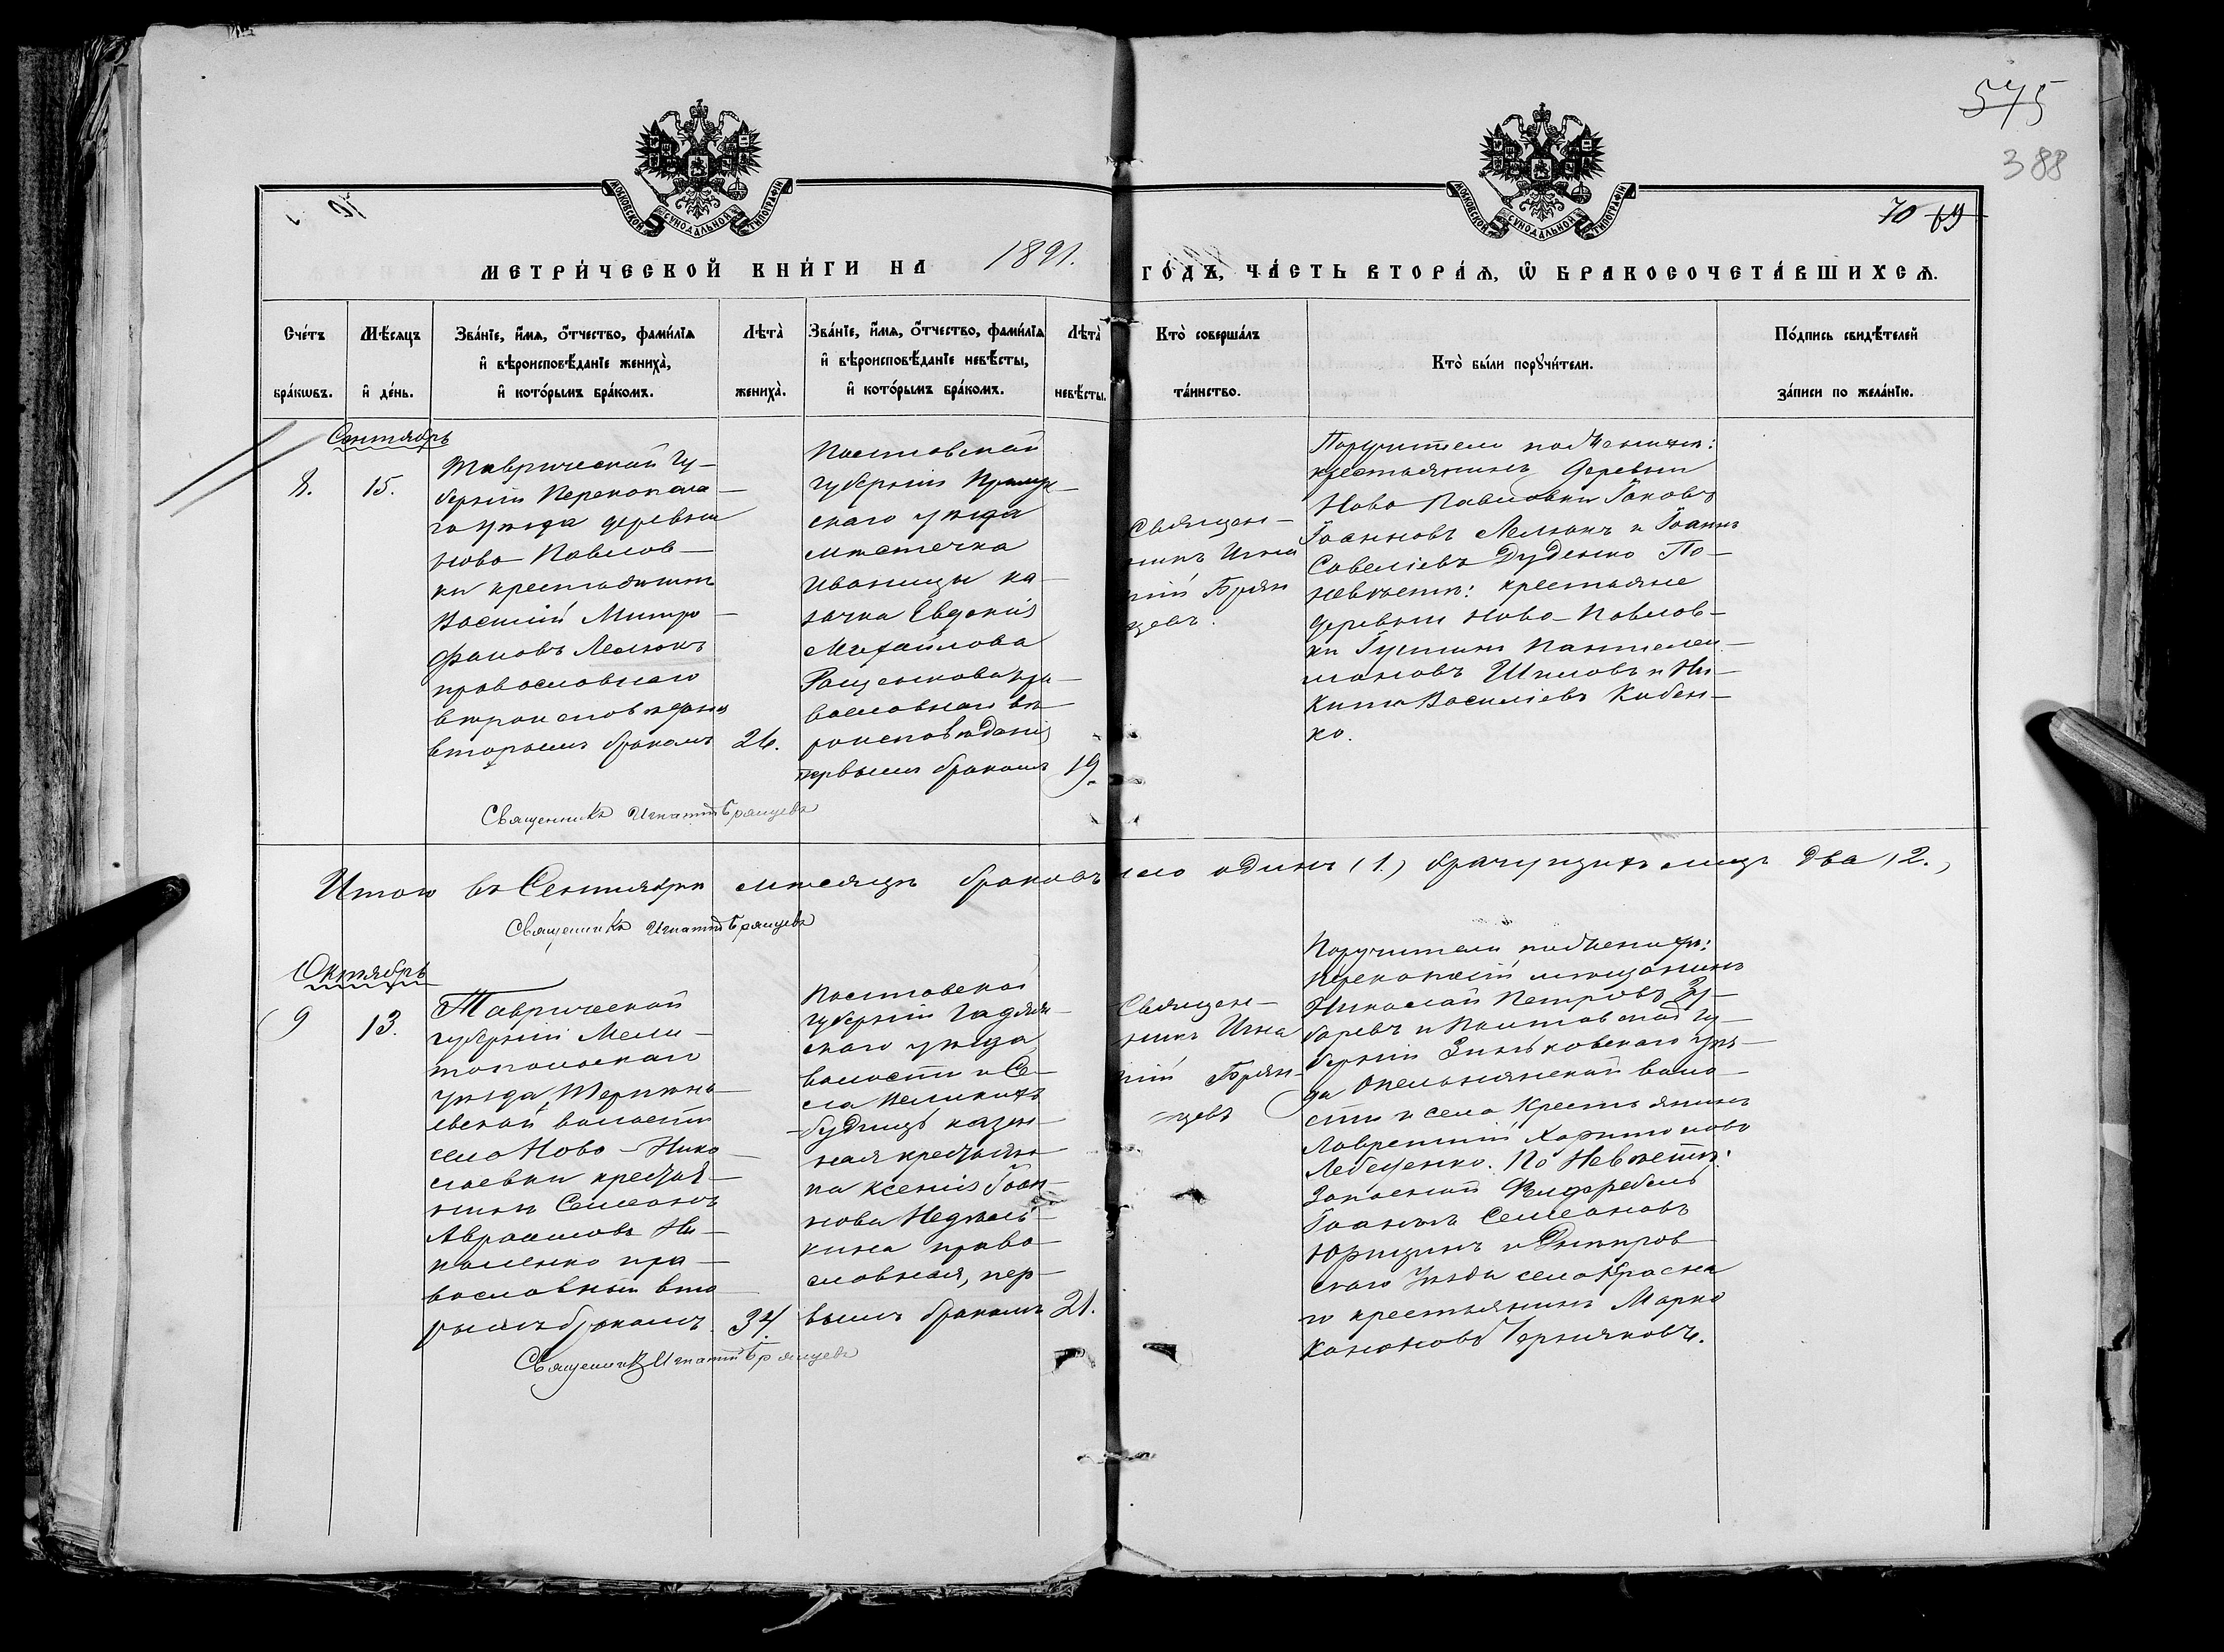 575
388
70 69
МОСКОВСКОЙ СУНОДАЛЬНОЙ ТИПОГРАФІИ
МОСКОВСКОЙ СУНОДАЛЬНОЙ ТИПОГРАФІИ
МЕТРИ́ЧЕСКОЙ КНИ́ГИ НА 1891. ГО́ДЪ, ЧА́СТЬ ВТОРА́Ѧ, Ѽ БРАКОСОЧЕТА́ВШИХСѦ.
Сче́тъ
бра́кѡвъ.
Мѣ́сѧцъ
и҆ де́нь.
Зва́нїе, и҆́мѧ, ѻ҆́тчество, фами́лїѧ
и҆ вѣроисповѣ́данїе жениха̀,
и҆ кото́рымъ бра́комъ.
Лѣта̀
жениха̀.
Зва́нїе, и҆́мѧ, ѻ҆́тчество, фами́лїѧ
и҆ вѣроисповѣ́данїе невѣ́сты,
и҆ кото́рымъ бра́комъ.
Лѣта̀
невѣ́сты.
Кто̀ соверша́лъ
та́инство.
Кто̀ бы́ли порꙋчи́тели.
По́дпись свидѣ́телей
за́писи по жела́нїю.
Сентябрь
8.
15.
Таврической гу-
берніи Перекопска-
го уѣзда деревни
Ново-Павлов-
ки крестьянинъ
Василій Митро-
фановъ Лелюкъ
православнаго
вѣроисповѣданія
вторымъ бракомъ
26.
Полтавской
губерніи
скаго уѣзда
мѣстечка
Иваницы ка-
зачка Евдокія
Михайлова
пра-
вославнаго вѣ-
роисповѣданія
первымъ бракомъ
19.
Священ-
никъ Игна
тій Брян
цевъ.
Поручители по женихѣ:
крестьянинъ деревни
Ново-Павловки Іаковъ
Іоанновъ Лелюкъ и Іоаннъ
Савеліевъ Дуденко По
невѣстѣ: крестьяне
деревни Ново-Павлов-
ки Іустинъ Пантелеи-
моновъ Шиловъ и Ни-
кита Василіевъ
ко.
Священникъ Игнатій Брянцевъ
Итого въ Сентябрѣ мѣсяцѣ браковъ было одинъ (1.) брачущихъ лицъ два (2.)
Священникъ Игнатій Брянцевъ
Октябрь
9
13.
Таврической
губерніи Мели-
топольскаго
уѣзда,
евской волости
села Ново-Нико-
лаевки крестья-
нинъ Симеонъ
Авраамовъ Ни-
коленко пра-
вославный вто
рымъ бракомъ.
34.
Полтавской
губерніи Гадяч-
скаго уѣзда
волости и Се-
ла Великихъ
Будищъ казен-
ная крестьян-
ка Ксенія Іоан-
нова Недѣль-
кина право-
славная, пер-
вымъ бракомъ
21.
Священ-
никъ Игна
тій Брян-
цевъ
Поручители по женихѣ:
Перекопскій мѣщанинъ
Николай Петровъ Зу-
баревъ и Полтавской гу-
берніи Зиньковскаго уѣз-
да Опошнянской воло-
сти и села Крестьянинъ
Лаврентій Харитоновъ
По Невѣстѣ:
Запасный Фелдфебель
Іоаннъ Симеоновъ
и Днѣпров-
скаго Уѣзда села Красна
го крестьянинъ Марко
Кононовъ Черняковъ.
Священникъ Игнатій Брянцевъ